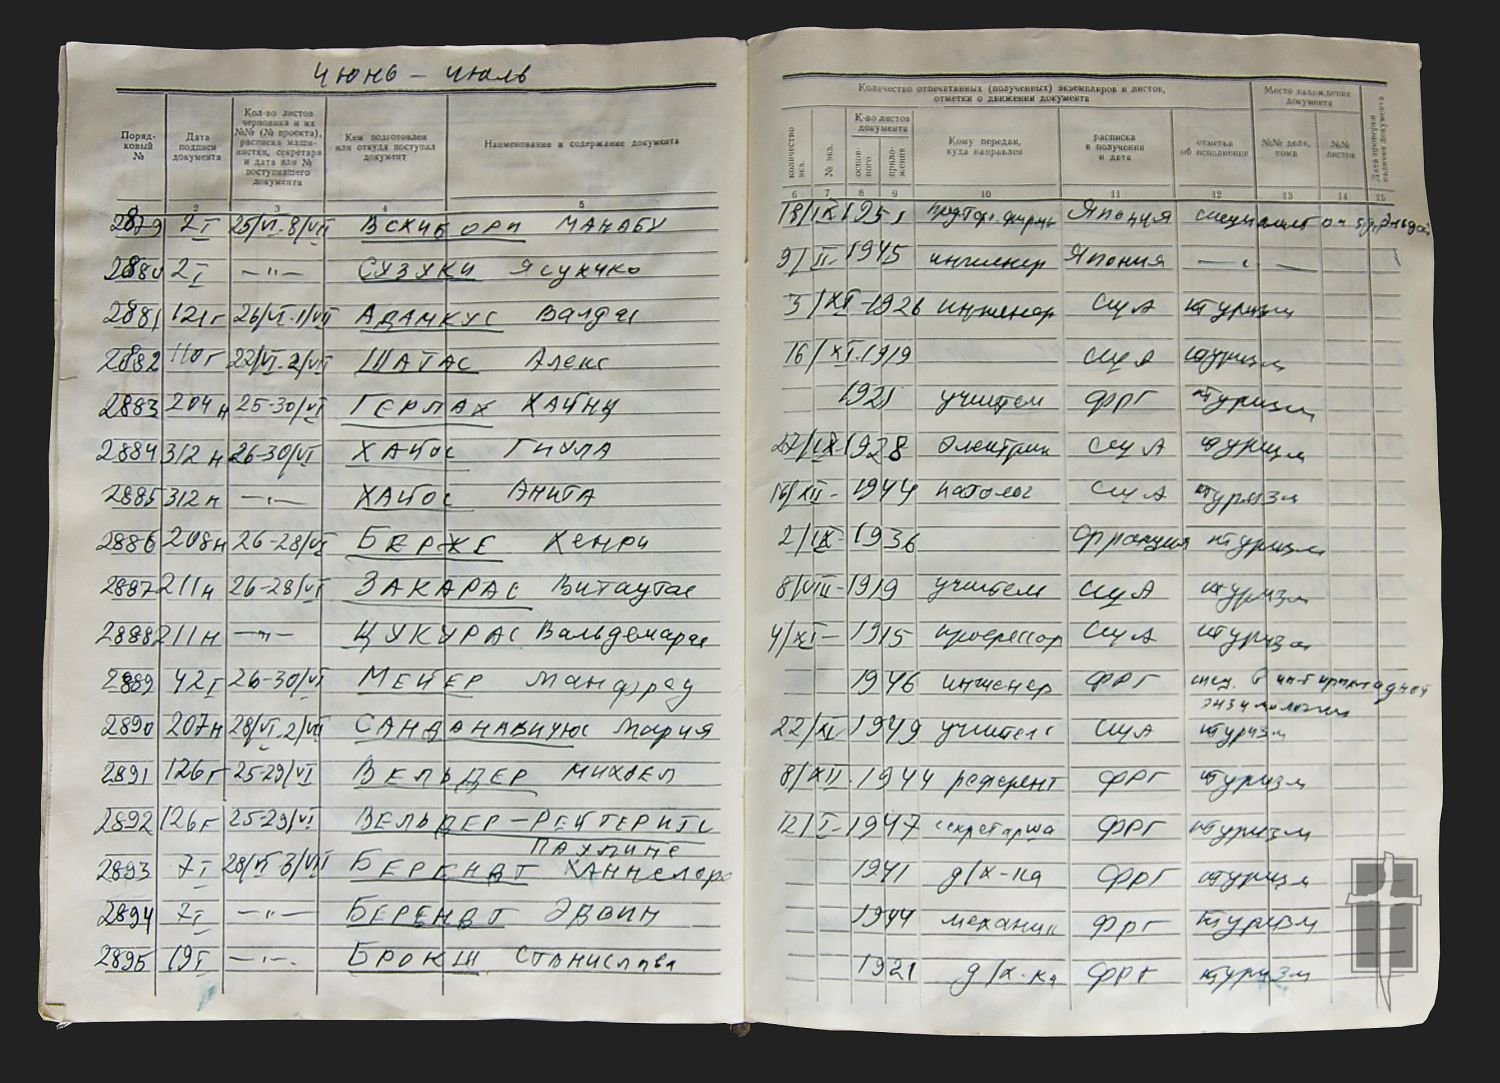 Июнь – Июль
Поряд-
ковый
№
Дата
подписи
документа
Кол-во листов
черновика и их
№№ (№ проекта),
расписка маши-
нистки, секретаря
и дата или №
поступившего
документа
Кем подготовлен
или откуда поступил
документ
Наименование и содержание документа
Количество отпечатанных (полученных) экземпляров и листов,
отметки о движении документа
Место нахождения
документа
количество
экз.
№ экз.
К-во листов
документа
основ-
ного
прило-
жения
Кому передан,
куда направлен
расписка
в получении
и дата
отметка
об исполнении
№№ дела,
тома
№№
листов
Дата проверки
наличия документа
2 3 4 5 6 7 8 9 10 11 12 13 14 15
2879 2I 25/VI-8/VII МАНАБУ 18/IX 1951 Япония специалист
2880 2I —"— СУЗУКИ Ясухико 9/II-1945 инженер Япония —"—
2881 121г 26/VI-1/VII АДАМКУС Валдас 3/XI-1926 инженер США туризм
2882 110г 22/VI-2/VII ШАТАС Алекс 16/XI-1919 США туризм
2883 204н 25-30/VI ГЕРЛАХ ХАЙНЦ 1921 учитель ФРГ туризм
2884 312н 26-30/VI ХАЙОС ГИУЛА 27/IX-1928 электрик США туризм
2885 312н —"— ХАЙОС АНИТА 16/XII-1944 патолог США туризм
2886 208н 26-28/VI БЕРЖЕ Хенри 2/IX-1936 Франция туризм
2887 211н 26-28/VI ЗАКАРАС Витаутас 8/VIII-1919 учитель США туризм
2888 211н —"— ЦУКУРАС Вальдемарас 4/XI-1915 профессор США туризм
2889 42I 26-30/VI МЕЙЕР Манфред 1946 инженер ФРГ спец. в ин-т прикладной
энзимологии
2890 207н 28/VI-2/VII САНДАНАВИЧЮС Мария 22/XI-1949 учитель США туризм
2891 126г 25-29/VI ВЕЛЬДЕР МИХАЕЛ 8/XII-1944 референт ФРГ туризм
2892 126г 25-29/VI ВЕЛЬДЕР- 12/I-1947 секретарша ФРГ туризм
ПАУЛИНЕ
2893 7I 28/VI-3/VII БЕРЕНДТ ХАННЕЛОРЕ 1941 д/х-ка ФРГ туризм
2894 7I —"— БЕРЕНДТ ЭДВИН 1944 механик ФРГ туризм
2895 19I —"— БРОКШ Станислава 1921 д/х-ка ФРГ туризм